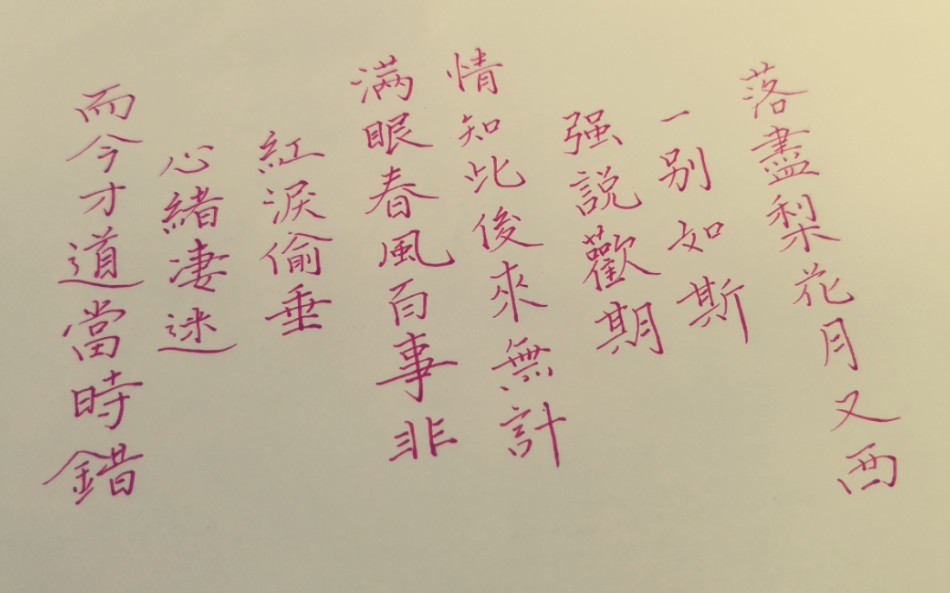 而今才道當時錯
心緒凄迷
紅淚偷垂
满眼春風百事非
情知此後來無計
强説歡期
一别如斯
落盡梨花月又西